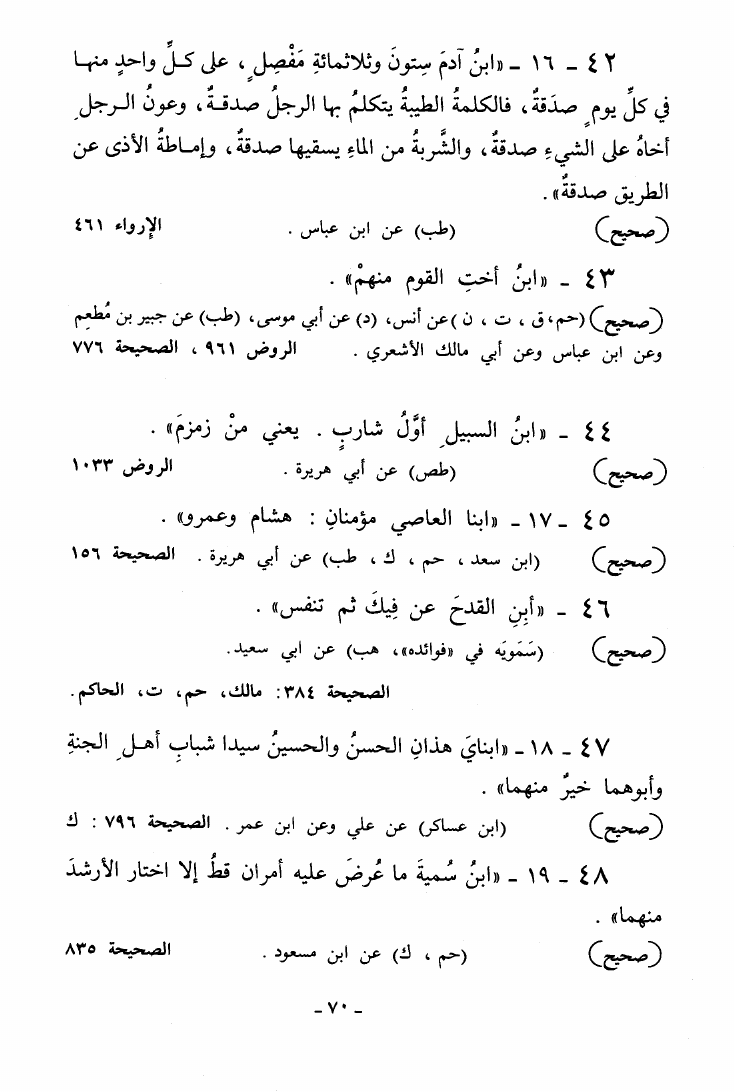 ٤٢ - ١٦ - «ابنُ آدمَ سِتونَ وثلاثمائةِ مَفْصِلٍ ، على كلِّ واحدٍ منهـا
في كلِّ يومٍ صدَقةٌ، فالكلمةُ الطيبةُ يتكلمُ بها الرجلُ صدقـةٌ، وعونُ الـرجلِ
أخاهُ على الشيءِ صدقةٌ، والشَّربةُ من الماءِ يسقيها صدقةٌ، وإمـاطةُ الأذى عن
الطريق صدقةٌ» .
(صحيح) (طب) عن ابن عباس . الإرواء ٤٦١
٤٣ - «ابنُ أختِ القوم منهمْ» .
(صحيح) (حم، ق ، ت ، ن) عن أنس، (د) عن أبي موسى، (طب) عن جبير بن مُطعِم
وعن ابن عباس وعن أبي مالك الأشعري . الروض ٩٦١ ، الصحيحة ٧٧٦
٤٤ - «ابنُ السبيلِ أوَّلُ شاربٍ . يعني منْ زمزمَ» .
(صحيح) (طص) عن أبي هريرة . الروض ١٠٣٣
٤٥ - ١٧ - «ابنا العاصي مؤمنانِ : هشام وعمرو» .
(صحيح) (ابن سعد ، حم ، ك ، طب) عن أبي هريرة . الصحيحة ١٥٦
٤٦ - «أَبِنِ القدحَ عن فِيكَ ثم تنفس» .
(صحيح) (سَمَويَه في «فوائده»، هب) عن ابي سعيد.
الصحيحة ٣٨٤: مالك، حم، ت، الحاكم.
٤٧ - ١٨ - «ابنايَ هذانِ الحسنُ والحسينُ سيدا شبابِ أهـلِ الجنةِ
وأبوهما خيرٌ منهما» .
(صحيح) (ابن عساكر) عن علي وعن ابن عمر . الصحيحة ٧٩٦ : ك
٤٨ - ١٩ - «ابنُ سُميةَ ما عُرضَ عليه أمران قطُ إلا اختار الأرشدَ
منهما» .
(صحيح) (حم ، ك) عن ابن مسعود . الصحيحة ٨٣٥
- ٧٠ -